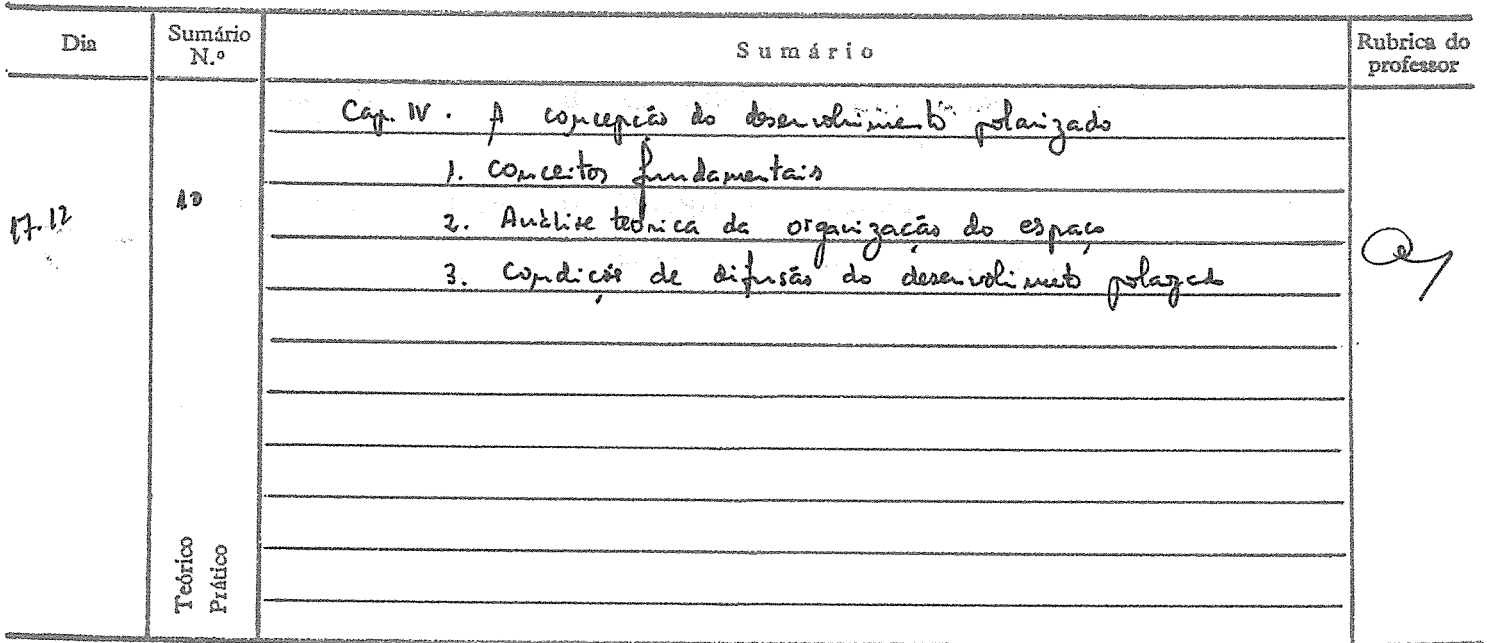 Dia
Sumário N.º
Sumário
Rubrica do professor
Cap. IV. A concepção do desenvolvimento polarizado
1. Conceitos fundamentais
17.12
2. Análise teórica da organização do espaço
3. Condições de difusão do desenvolvimento
Teórico
Prático